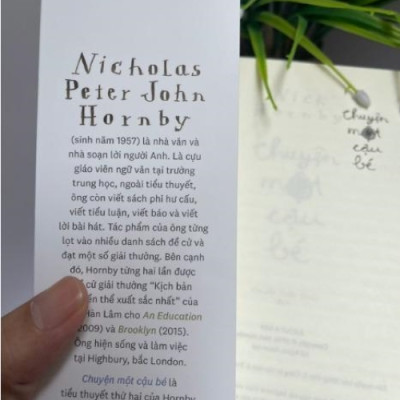 Nicholas
Peter John
Hornby
(sinh năm 1957) là nhà văn và
nhà soạn lời người Anh. Là cựu
giáo viên ngữ văn tại trường
trung học, ngoài tiểu thuyết,
ông còn viết sách phi hư cấu,
viết tiểu luận, viết báo và viết
lời bài hát. Tác phẩm của ông từng
lọt vào nhiều danh sách đề cử và
đạt một số giải thưởng. Bên cạnh
đó, Hornby từng hai lần được
cử giải thưởng “Kịch bản
thể xuất sắc nhất” của
Hàn Lâm cho An Education
2009) và Brooklyn (2015).
Ông hiện sống và làm việc
tại Highbury, bắc London.
Chuyện một cậu bé là
tiểu thuyết thứ hai của Hornby
chuyện
một
cậu
bé